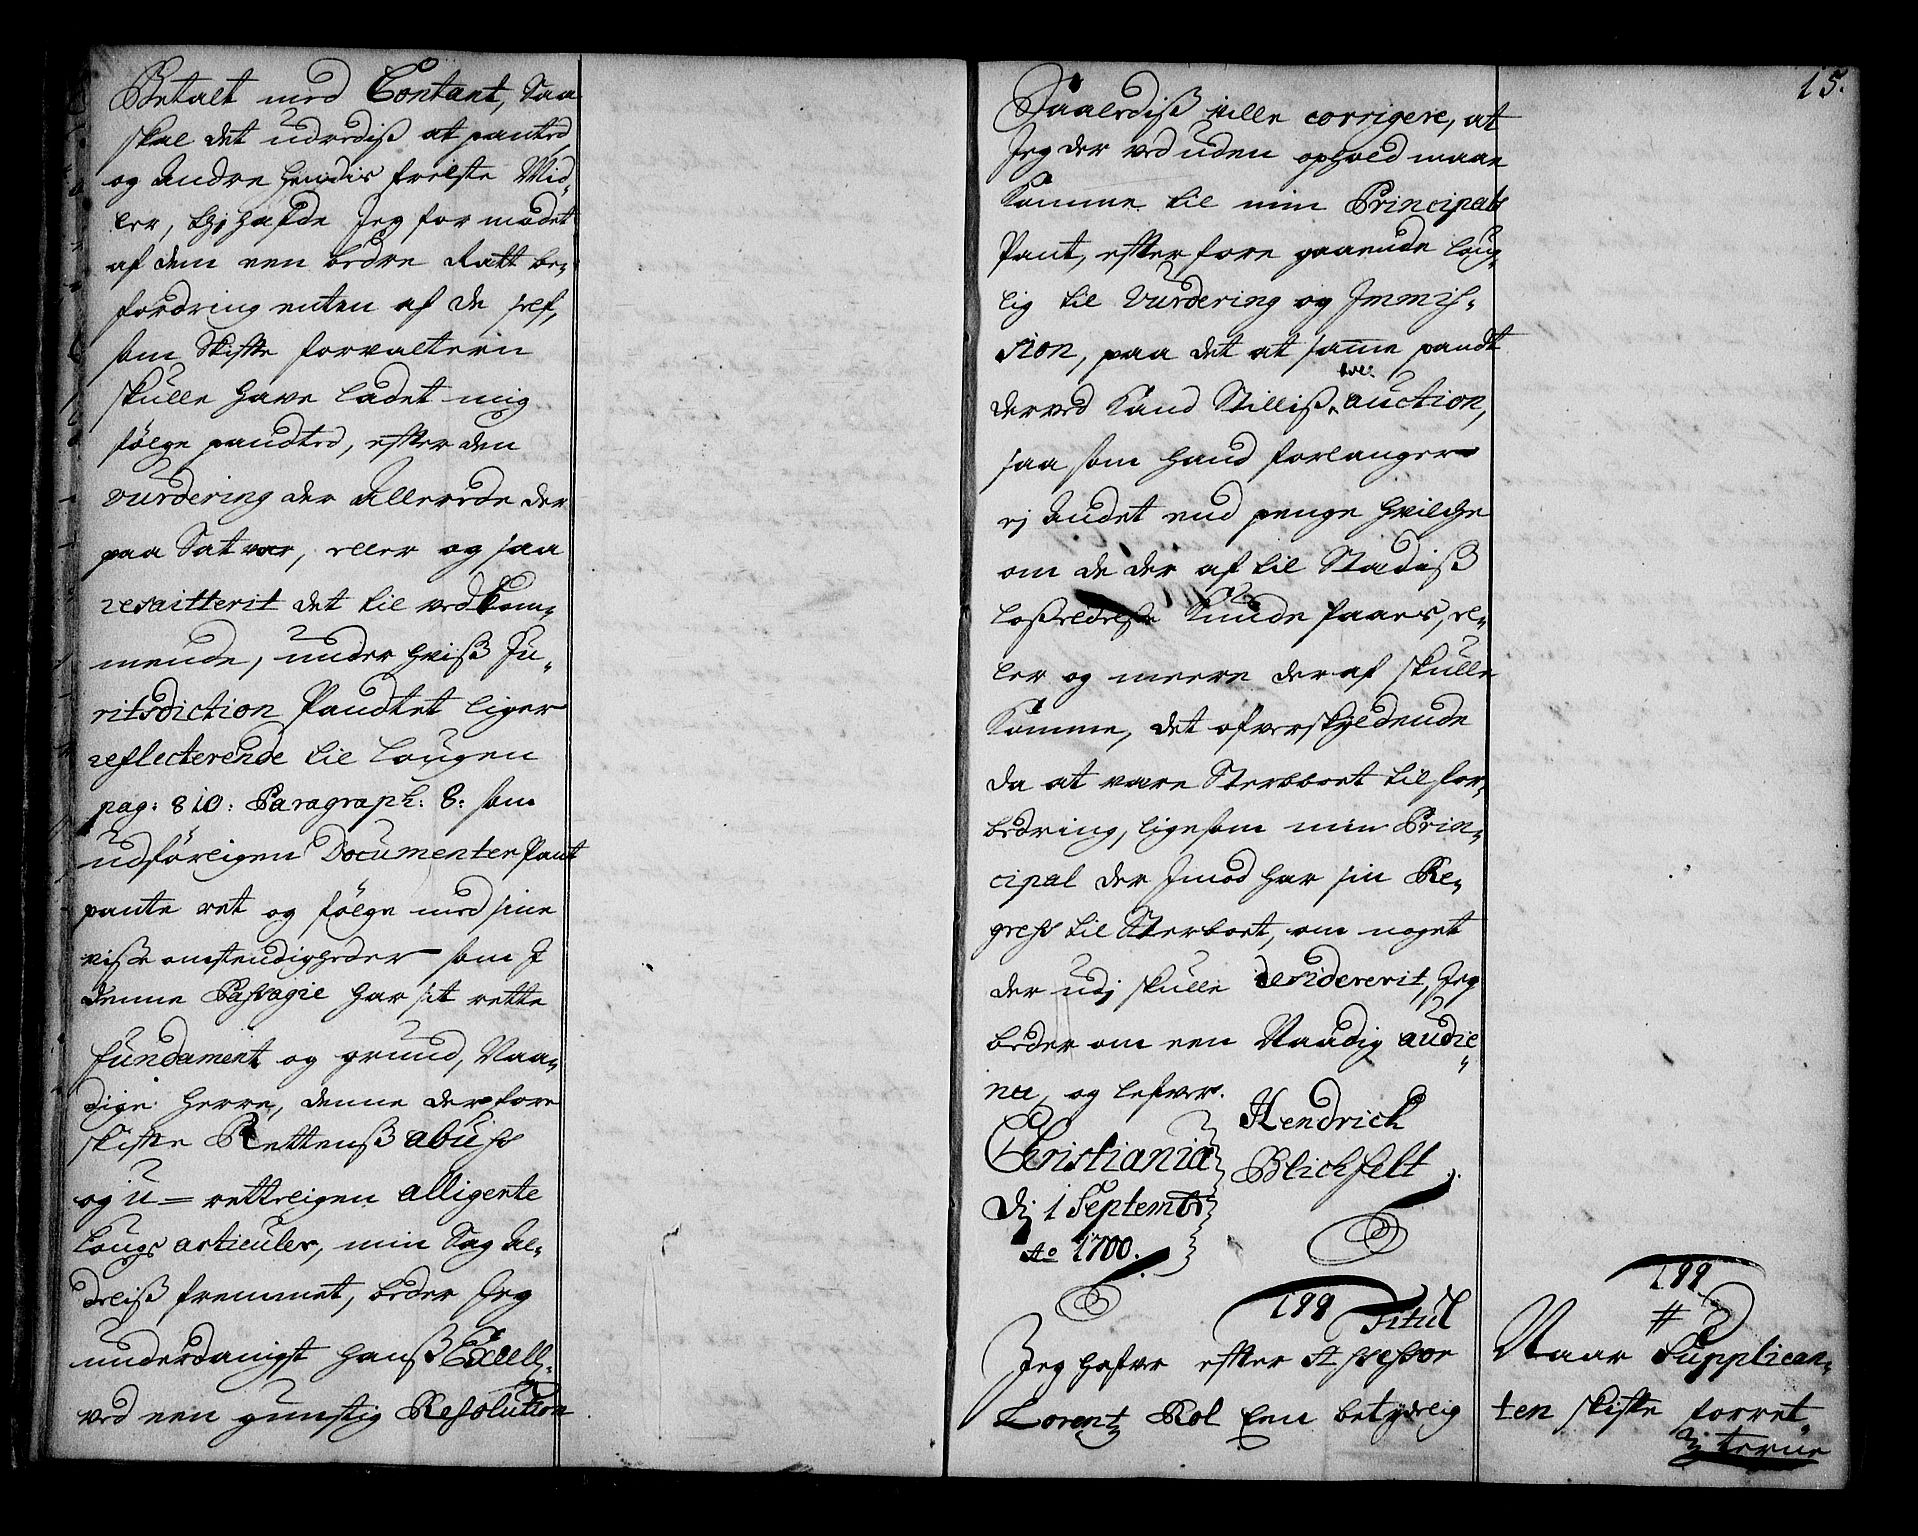 Betalt med Contant, Saa
skal det udredis at panted
og Andre hendis frelste Mid„
ler, thj hafde Jeg formodet
af dem een bedre Rætt be„
fordring enten af de self,
som Skifte forvalterin
skulle have ladet mig
fölge pandted, efter den
vurdering der Allerede der
paa Sat var, eller og saa
remitterit det til vedkom„
mende, under hviß Ju„
ritsdiction Pandtet liger
reflecterende til Lougen
pag: 810: Paragraph: 8: som
udförligen Documenter Pant
pante ret og fölge med sine
visse omstendigheder som I
denne Passagie har sit rette
fundament og grund, Naa„
dige Herre, denne derfore
skifte Rettenß abuss
og u = rettveigen alligerte
Lougs articuler, min Sag Al„
deliß fremmet, beder Jeg
underdanigst hanß Excell:
ved een gunstig Resolution
15.
Saalediß ville corrigere, at
Jeg der ved uden ophold maae
Komme til min Principals
Pant, efter fore gaaende Loug„
lig til Vurdering og Immis„
sion, paa det at same pandt
derved Kand Stilliß till auction,
saa som hand forlanger
ej Andet end penge hvilche
om de der af til Stædiß
Kunde faaes, el„
ler og meere der af skulle
Komme, det ofverskydende
da at være Sterbboet til for„
bedring, ligesom min Prin„
cipal der Imod har sin Re„
gress til Sterboet, om noget
der udj skulle desidererit, Jeg
beder om een Naadig audie„
nce, og lefver.
Christiania
Dj 1 Septembr
Ao 1700.
Hendrich
Blichfelt.
199
Titul
Jeg hafver efter Assessor
Lorentz Rol Een betydelig
199
#
Naar Supplican„
ten skifte forret„
terne